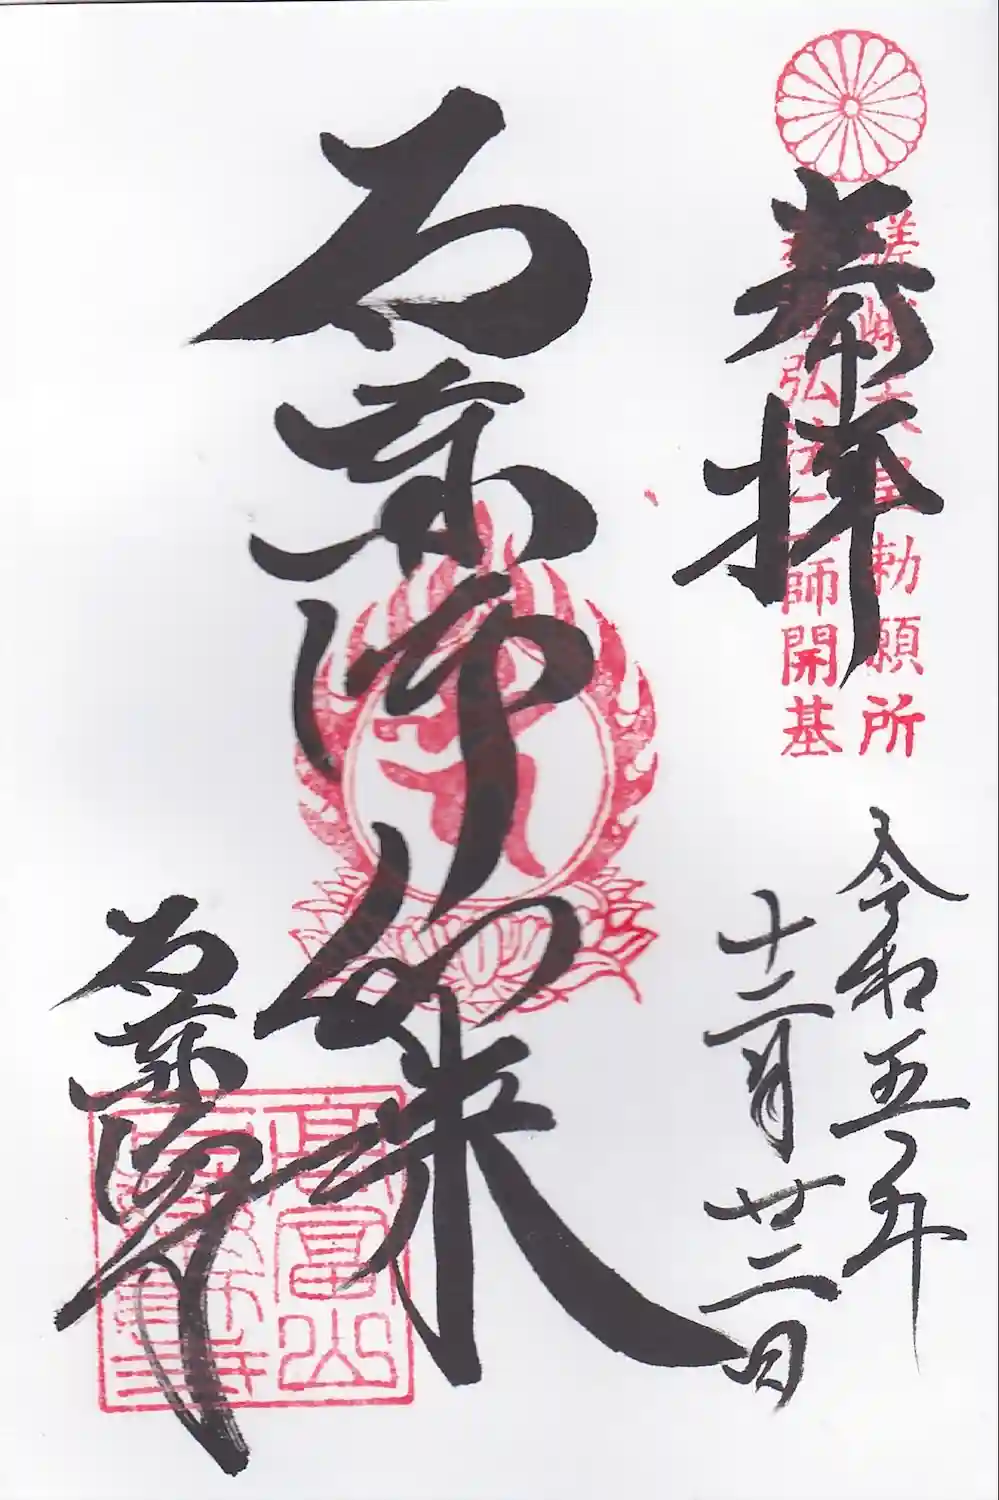 奉拝
嵯峨天皇勅願所
弘法大師開基
令和五年
十二月廿二日
石薬師如来
石薬師寺
高富山